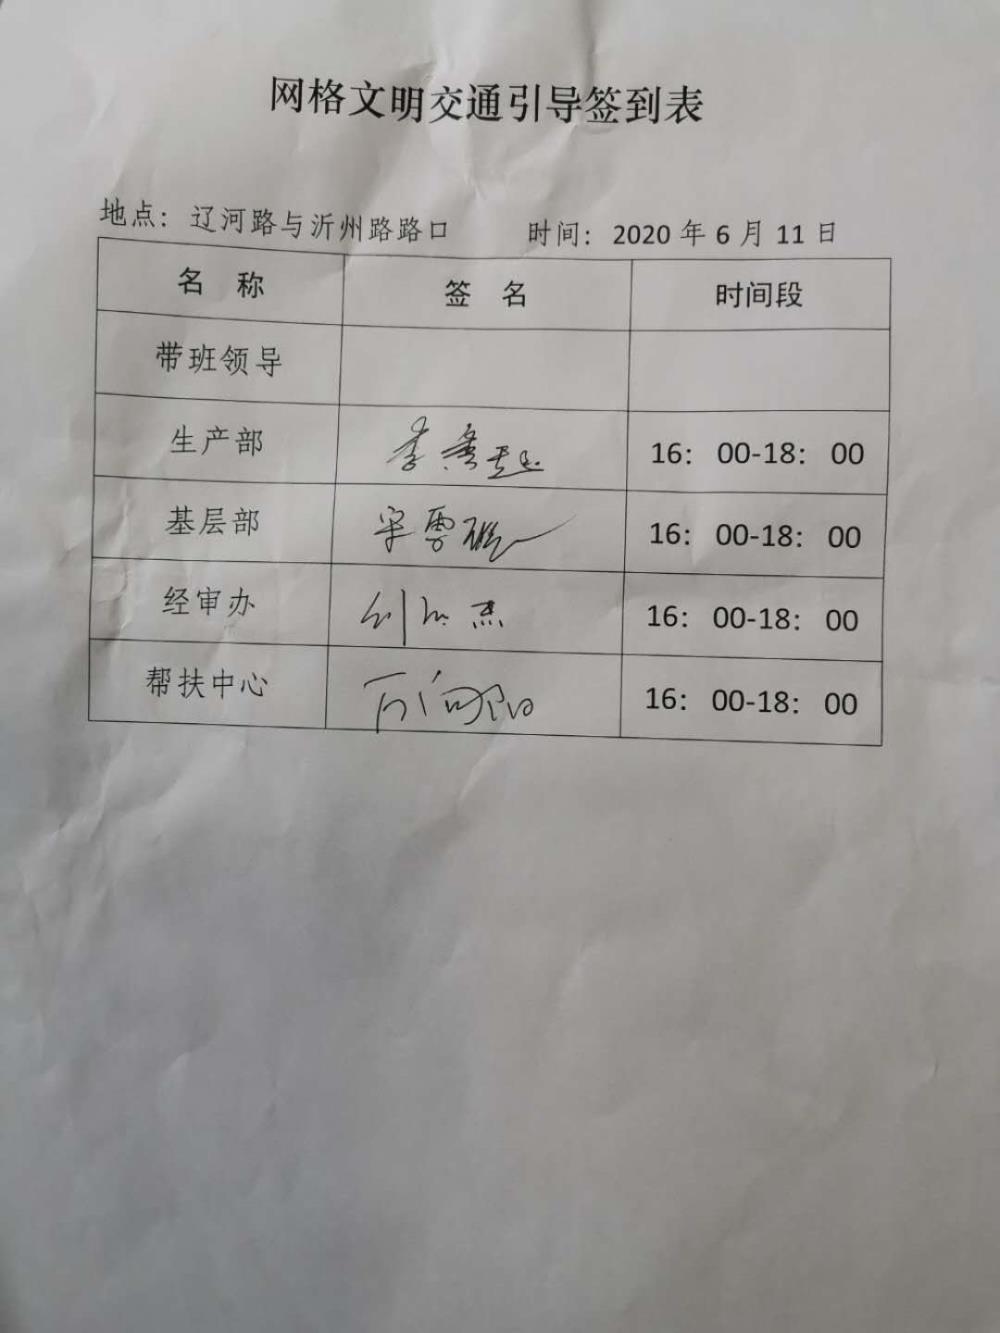 网格文明交通引导签到表
地点：辽河路与沂州路路口 时间：2020 年 6 月 11 日
名 称 签 名 时间段
带班领导
生产部 李 16：00-18：00
基层部 16：00-18：00
经审办 刘 杰 16：00-18：00
帮扶中心 万向阳 16：00-18：00